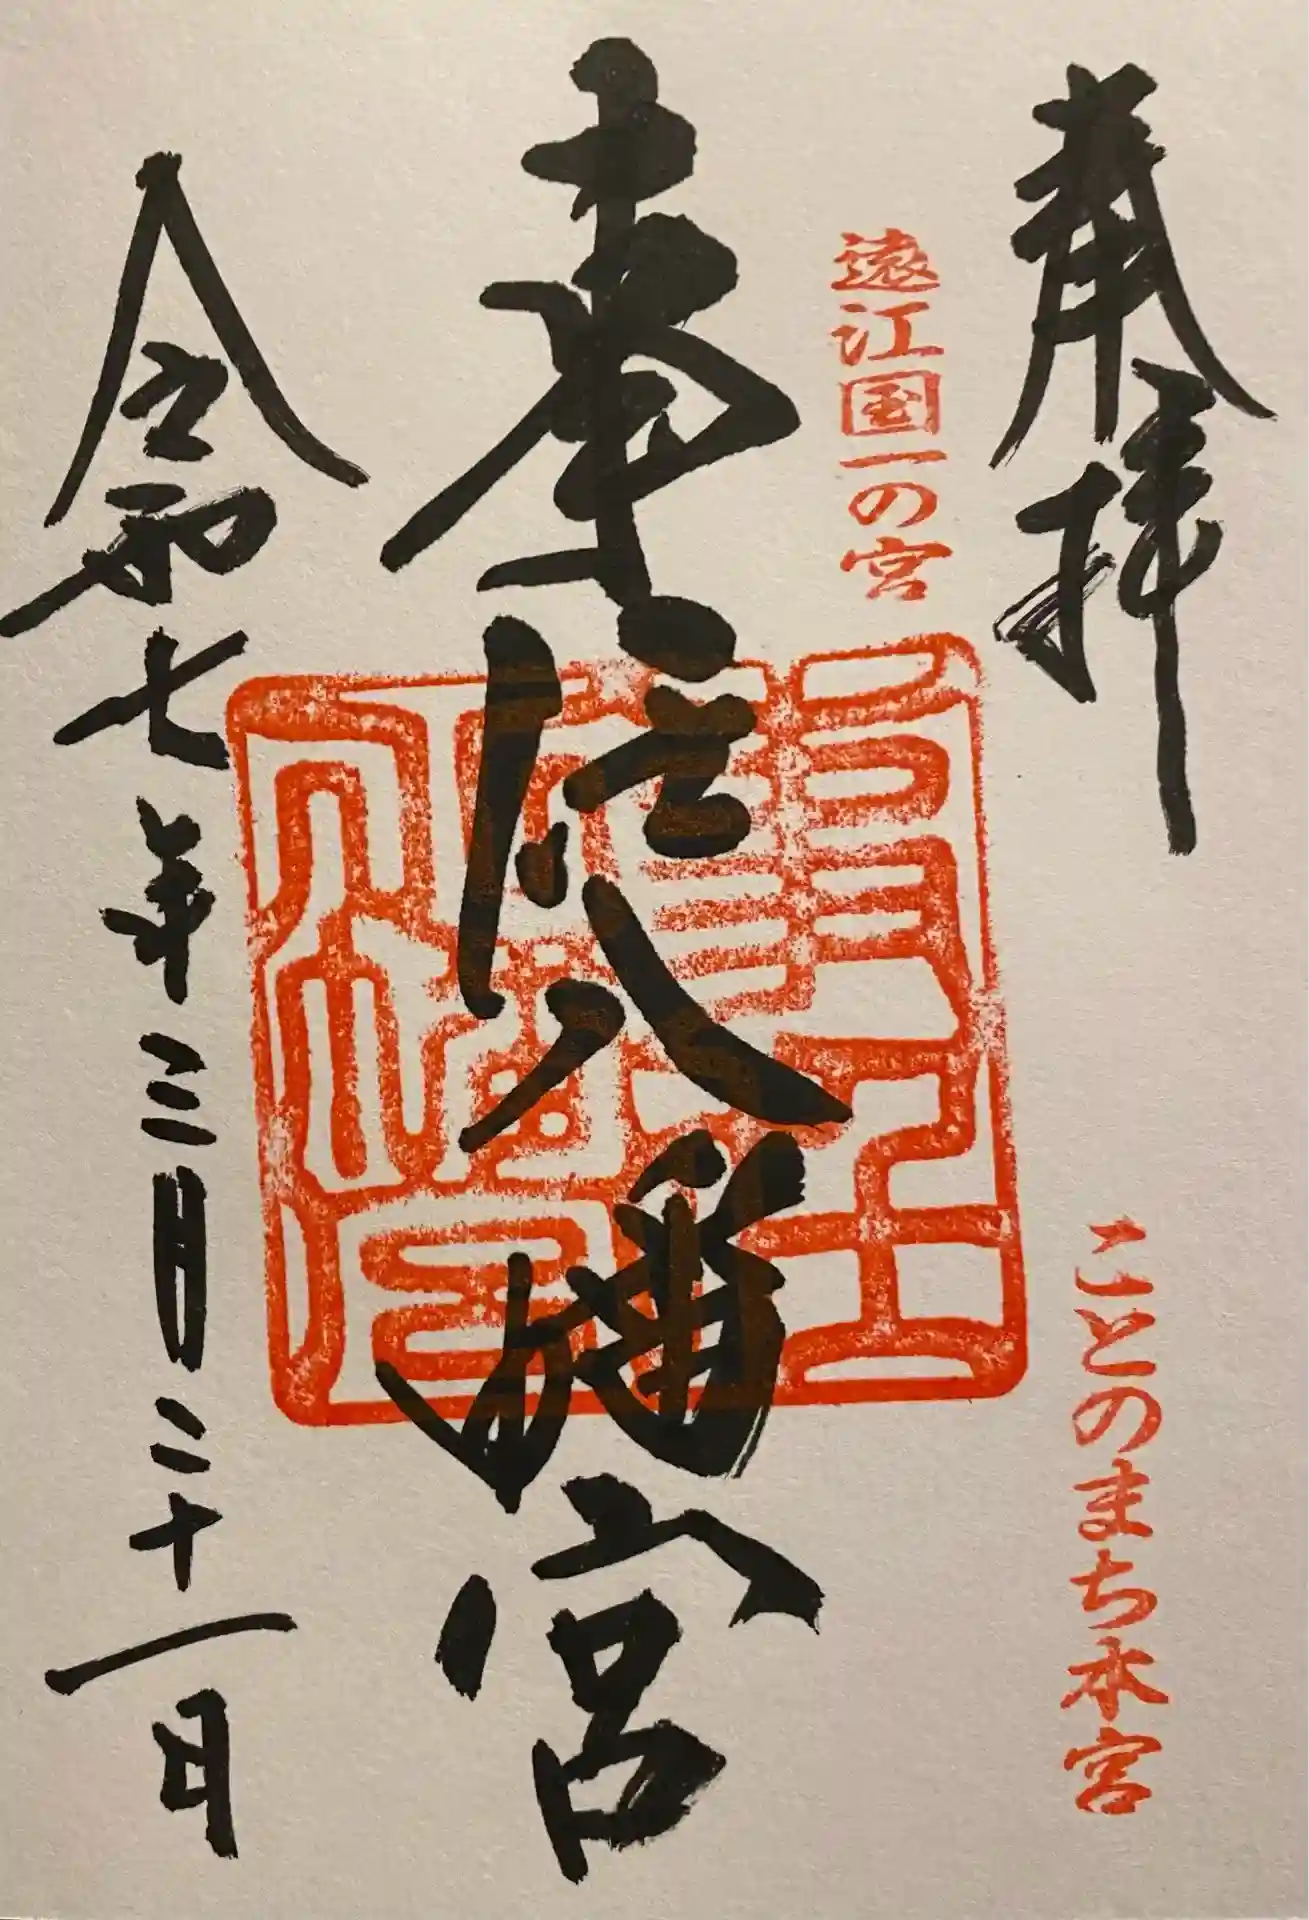 奉拝
ことのまち本宮
遠江国一の宮
事任八幡宮
事任八幡宮
令和七年三月二十一日